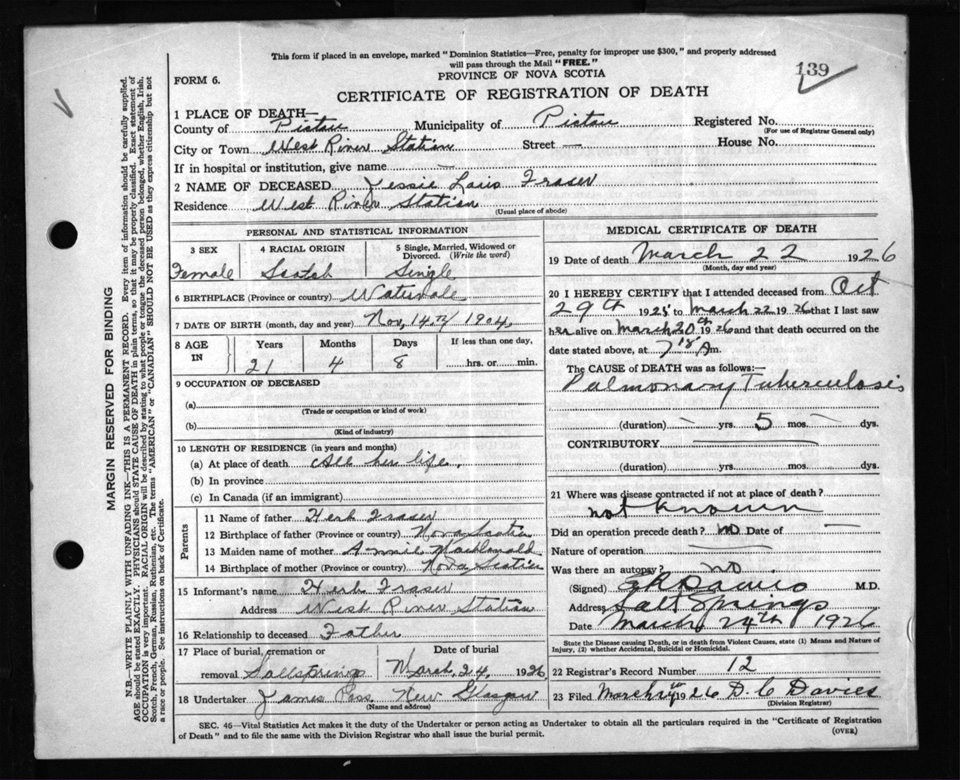 This form if placed in an envelope, marked "Dominion Statistics—Free, penalty for improper use $300," and properly addressed
will pass through the Mail "FREE."
139
FORM 6.
PROVINCE OF NOVA SCOTIA
CERTIFICATE OF REGISTRATION OF DEATH
1 PLACE OF DEATH—
County of Pictou Municipality of Pictou Registered No.
(For use of Registrar General only)
City or Town West River Station Street — House No.
If in hospital or institution, give name —
2 NAME OF DECEASED Jessie Lois Fraser
Residence West River Station
(Usual place of abode)
PERSONAL AND STATISTICAL INFORMATION
3 SEX 4 RACIAL ORIGIN 5 Single, Married, Widowed or Divorced. (Write the word)
Female Scotch Single
6 BIRTHPLACE (Province or country)
7 DATE OF BIRTH (month, day and year) Nov. 14th 1904
8 AGE IN Years Months Days If less than one day,
21 4 8 hrs. or min.
9 OCCUPATION OF DECEASED
(a)
(Trade or occupation or kind of work)
(b)
(Kind of industry)
10 LENGTH OF RESIDENCE (in years and months)
(a) At place of death All her life,
(b) In province
(c) In Canada (if an immigrant)
Parents
11 Name of father Herb Fraser
12 Birthplace of father (Province or country) Nova Scotia
13 Maiden name of mother Annie MacDonald
14 Birthplace of mother (Province or country) Nova Scotia
15 Informant's name Herb Fraser
Address West River Station
16 Relationship to deceased Father
17 Place of burial, cremation or removal Date of burial
Saltsprings March 24, 1926
18 Undertaker James Pass New Glasgow
(Name and address)
MEDICAL CERTIFICATE OF DEATH
19 Date of death March 22 1926
(Month, day and year)
20 I HEREBY CERTIFY that I attended deceased from Oct
29th 1925 to March 22 1926 that I last saw
her alive on March 20th 1926 and that death occurred on the
date stated above, at 7 15 Am.
The CAUSE of DEATH was as follows:—
Pulmonary Tuberculosis
(duration) — yrs. 5 mos. — dys.
CONTRIBUTORY
(duration) yrs. mos. dys.
21 Where was disease contracted if not at place of death?
not known
Did an operation precede death? no Date of —
Nature of operation
Was there an autopsy? no
(Signed) M.D.
Address Salt Springs
Date March 24th 1926
State the Disease causing Death, or in death from Violent Causes, state (1) Means and Nature of
Injury, (2) whether Accidental, Suicidal or Homicidal.
22 Registrar's Record Number 12
23 Filed March 1926 D. C. Davies
(Division Registrar)
SEC. 46—Vital Statistics Act makes it the duty of the Undertaker or person acting as Undertaker to obtain all the particulars required in the "Certificate of Registration
of Death" and to file the same with the Division Registrar who shall issue the burial permit.
(OVER)
MARGIN RESERVED FOR BINDING
N.B.—WRITE PLAINLY WITH UNFADING INK—THIS IS A PERMANENT RECORD. Every item of information should be carefully supplied.
AGE should be stated EXACTLY. PHYSICIANS should STATE CAUSE OF DEATH in plain terms, so that it may be properly classified. Exact statement of
OCCUPATION is very important. RACIAL ORIGIN will be described by stating to what people or tongue the deceased person belonged, whether English, Irish,
Scotch, French, German, Russian, Ruthenian, etc. The terms "AMERICAN" or "CANADIAN" SHOULD NOT BE USED as they express citizenship but not
a race or people. See instructions on back of Certificate.